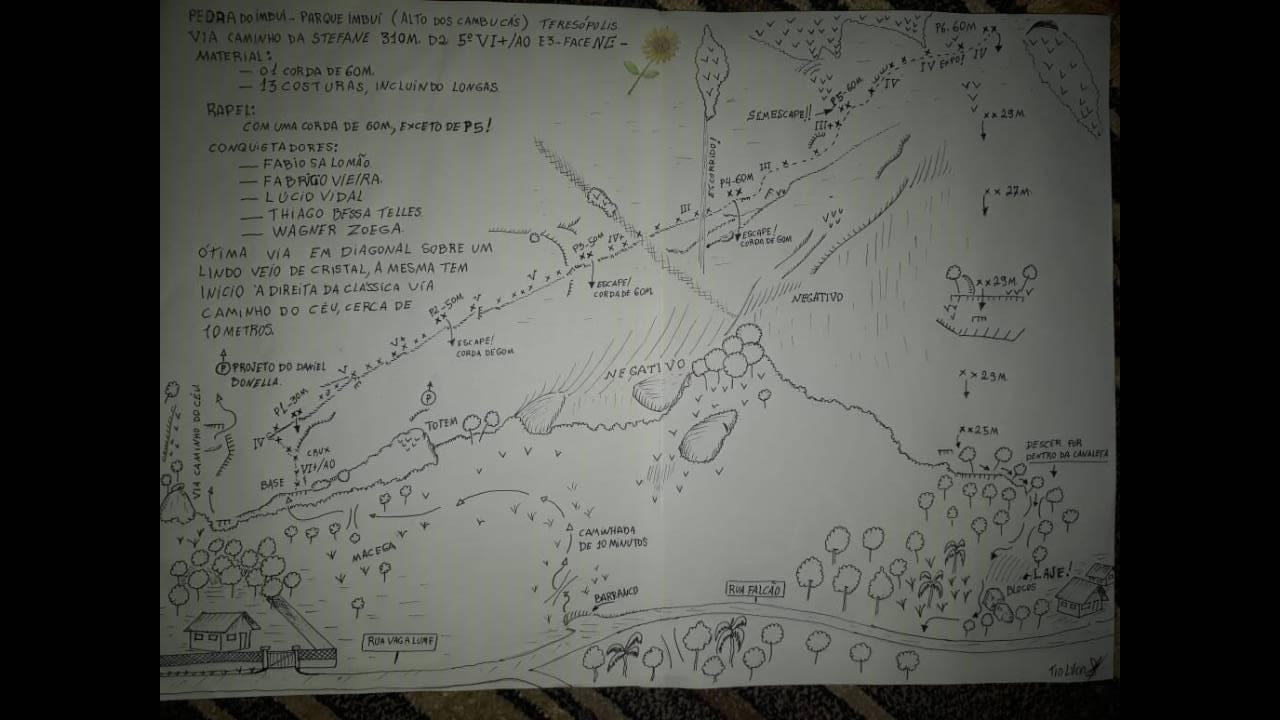 PEDRA DO IMBUÍ - PARQUE IMBUÍ (ALTO DOS CAMBUCÁS) TERESÓPOLIS
VIA CAMINHO DA STEFANE 310M. D2 5º VI+/A0 E3 - FACE NE -
MATERIAL:
— 01 CORDA DE 60M.
— 13 COSTURAS, INCLUINDO LONGAS.
RAPEL:
COM UMA CORDA DE 60M, EXCETO DE P5!
CONQUISTADORES:
— FABIO SALOMÃO.
— FABRICIO VIEIRA.
— LÚCIO VIDAL
— THIAGO BESSA TELLES.
— WAGNER ZOEGA.
ÓTIMA VIA EM DIAGONAL SOBRE UM
LINDO VEÍO DE CRISTAL, A MESMA TEM
INÍCIO À DIREITA DA CLÁSSICA VIA
CAMINHO DO CÉU, CERCA DE
10 METROS.
P PROJETO DO DANIEL
BONELLA.
VIA CAMINHO DO CÉU
BASE
CRUX
VI+/A0
IV
P1-30M
V
V+
P2-50M
ESCAPE!
CORDA DE 60M
V
V
P3-50M
ESCAPE!
CORDA DE 60M.
IV+
III
ESCORRIDO!
P4-60M
ESCAPE!
CORDA DE 60M
III
III+
SEM ESCAPE!!
P5-60M
IV
IV EXPO!
IV
P6-60M
IV
XX 29M
XX 27M.
XX 29M
XX 29M
XX 25M
NEGATIVO
NEGATIVO
P
TOTEM
MACEGA
CAMINHADA
DE 10 MINUTOS
BARRANCO
RUA FALCÃO
RUA VAGALUME
DESCER POR
DENTRO DA CANALETA
LAJE!
BLOCOS